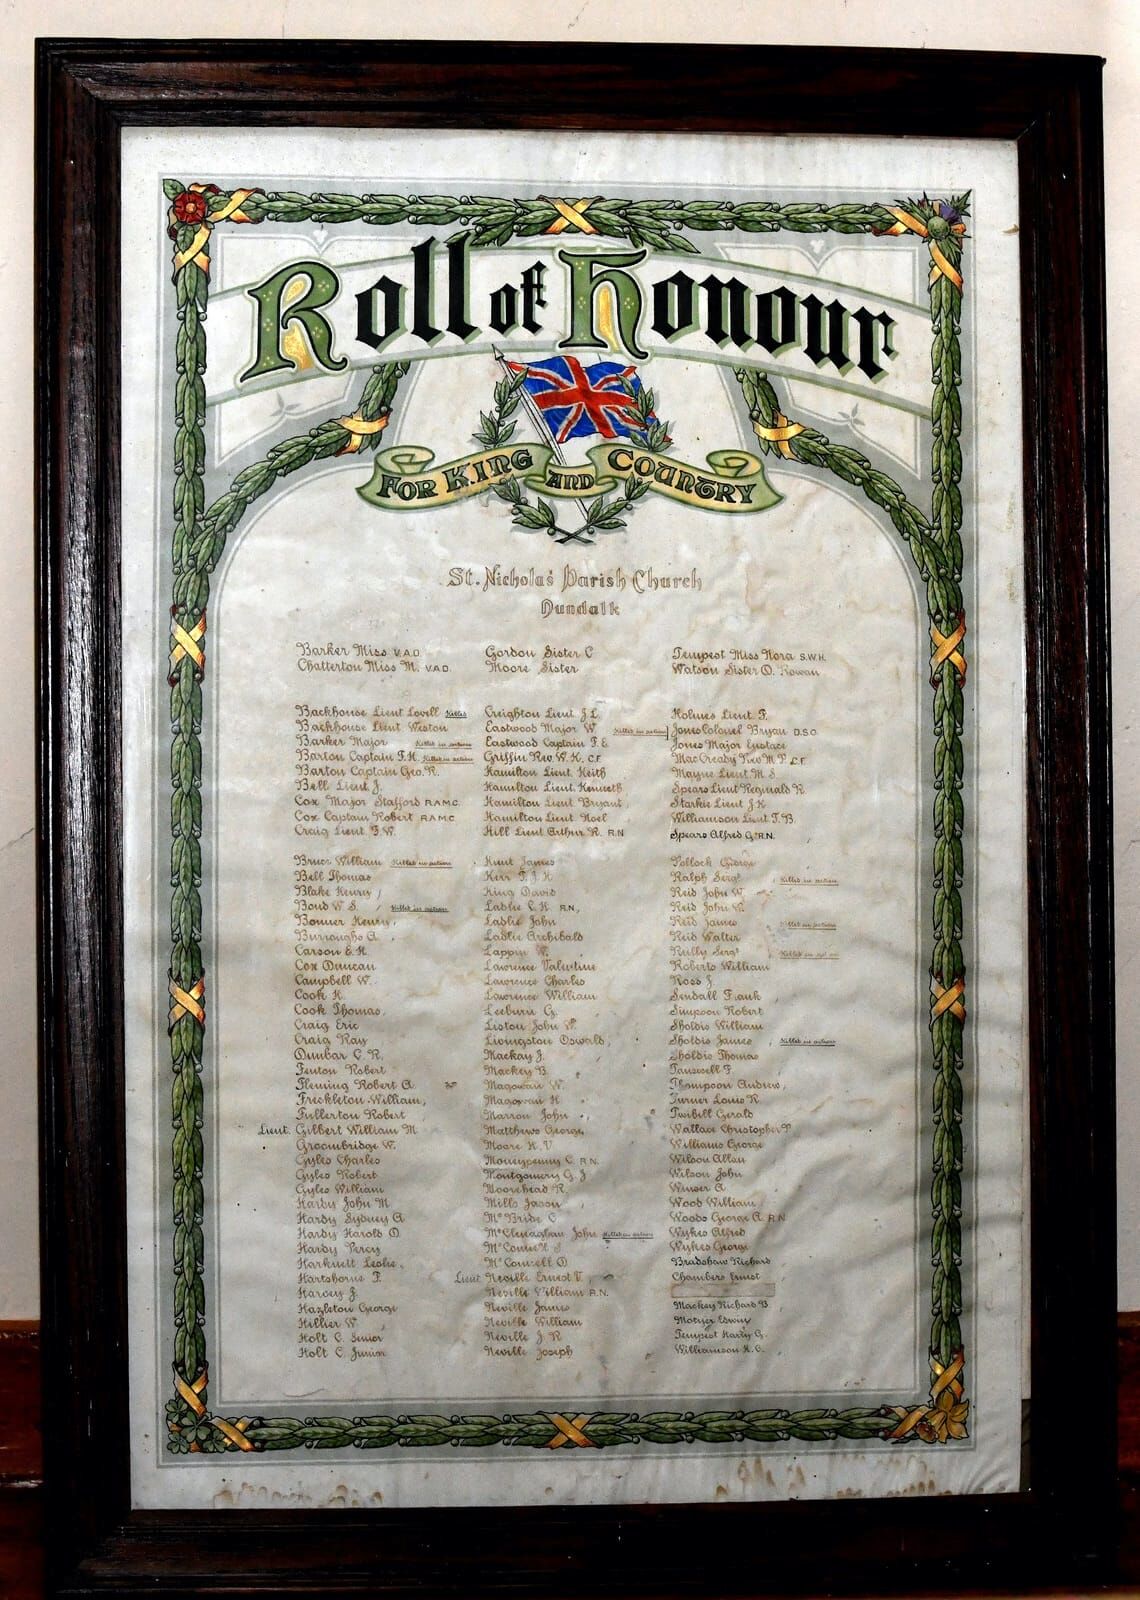 Roll of Honour
FOR KING AND COUNTRY
St. Nicholas Parish Church
Dundalk
Barker Miss V.A.D.
Chatterton Miss M. V.A.D.
Gordon Sister C
Moore Sister
Tempest Miss Nora S.W.H.
Watson Sister D. Rowan
Backhouse Lieut Lovell Killed
Backhouse Lieut Weston
Barker Major Killed in action
Barton Captain F.H. Killed in action
Barton Captain Geo. R.
Bell Lieut J.
Cox Major Stafford R.A.M.C.
Cox Captain Robert R.A.M.C
Craig Lieut F.W.
Creighton Lieut J.L.
Eastwood Major W.
Eastwood Captain F. E
Griffin Rev W. H. C.F
Hamilton Lieut. Keith
Hamilton Lieut. Kenneth
Hamilton Lieut Bryant
Hamilton Lieut Noel
Hill Lieut Arthur R. R.N
Holmes Lieut F.
Killed in action Jones Colonel Bryan D.S.O
Jones Major Eustace
MacCready Rev M.P. C.F
Mayne Lieut M. S
Spears Lieut Reginald R.
Starkie Lieut J.K
Williamson Lieut F.B.
Spears Alfred G. R.N.
Bruce William Killed in action
Bell Thomas
Blake Henry
Bond W S. Killed in action
Bonner Henry
Burroughs A
Carson E.H.
Cox Duncan
Campbell W.
Cook H.
Cook Thomas
Craig Eric
Craig Ray
Dunbar C. R.
Fenton Robert
Fleming Robert A
Frickleton William
Fullerton Robert
Lieut. Gilbert William M
Groombridge W.
Gyles Charles
Gyles Robert
Gyles William
Hardy John M
Hardy Sydney A
Hardy Harold D
Hardy Percy
Harknett Leslie
Hartshorne F.
Harvey J.
Hazleton George
Hillier W.
Holt C. Senior
Holt C. Junior
Hunt James
Kerr F. J. H
King David
Ladlie C. H. R.N.
Ladlie John
Ladlie Archibald
Lappin W.
Lawrence Valentine
Lawrence Charles
Lawrence William
Leeburn G.
Liston John W.
Livingston Oswald
Mackay J.
Mackey B.
Magowan W.
Magowan H
Marron John
Matthews George
Moore H. V
Moneypenny C. R.N.
Montgomery G. J
Moorehead R.
Mills Jason
McBride C
McClenaghan John Killed in action
McConnell S
McConnell D
Lieut Neville Ernest V
Neville William R.N.
Neville James
Neville William
Neville J. R
Neville Joseph
Pollock George
Ralph Sergt Killed in action
Reid John W.
Reid John W.
Reid James Killed in action
Reid Walter
Reilly Sergt Killed in action
Roberts William
Ross J.
Sendall Frank
Simpson Robert
Sholdis William
Sholdis James Killed in action
Sholdis Thomas
Tanswell F
Thompson Andrew
Turner Louis R.
Twibill Gerald
Wallace Christopher P
Williams George
Wilson Allan
Wilson John
Winser A
Wood William
Woods George A. R.N
Wykes Alfred
Wykes George
Bradshaw Richard
Chambers Ernest
Mackey Richard B.
Motyer Edwin
Tempest Harry G.
Williamson H. C.